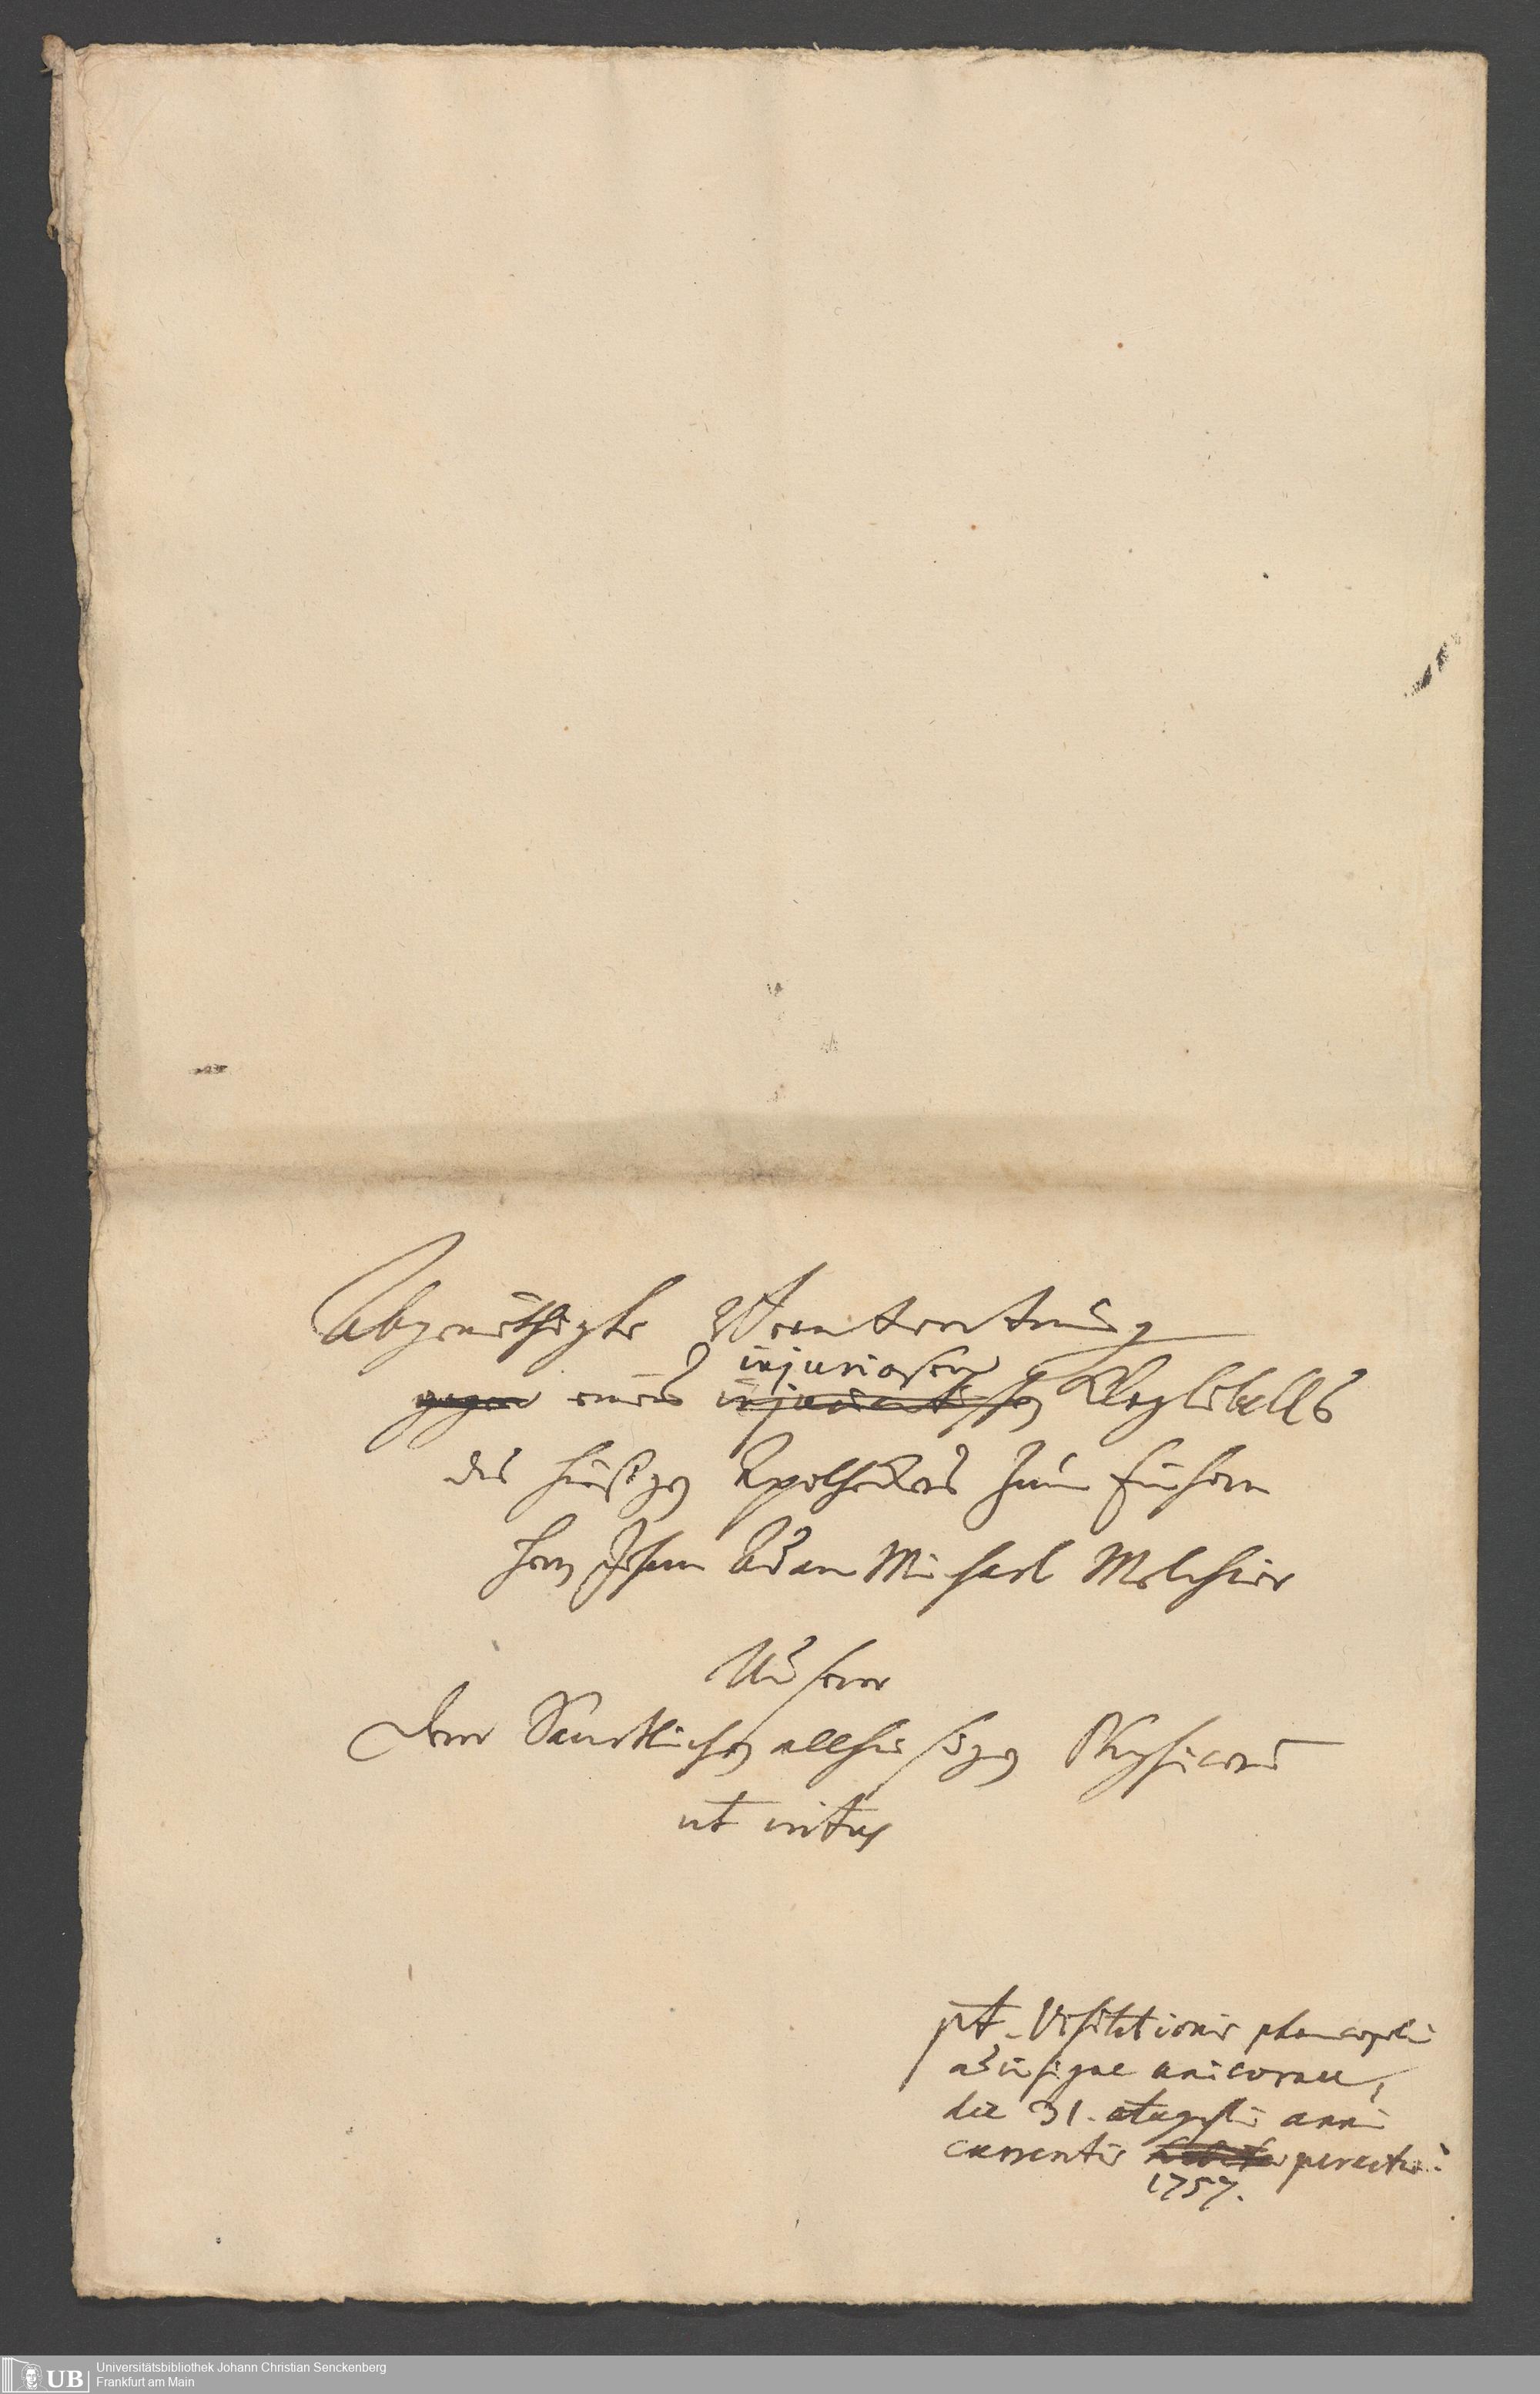 Abgenöthigte Verantwortung
injuriosen
gegen eines injuriantischen Klaglibells
des hiesigen Apothekers zum Einhorn
Herrn Johann Adam Michael Melchior
Unserer
Derer Sämtlichen allhiesigen Physicorum
ut intus
pt. Visitationis pharmacopolii
ad insigne unicornu,
die 31. Augusti anni
currentis peractae.
1757.
UB Universitätsbibliothek Johann Christian Senckenberg
Frankfurt am Main